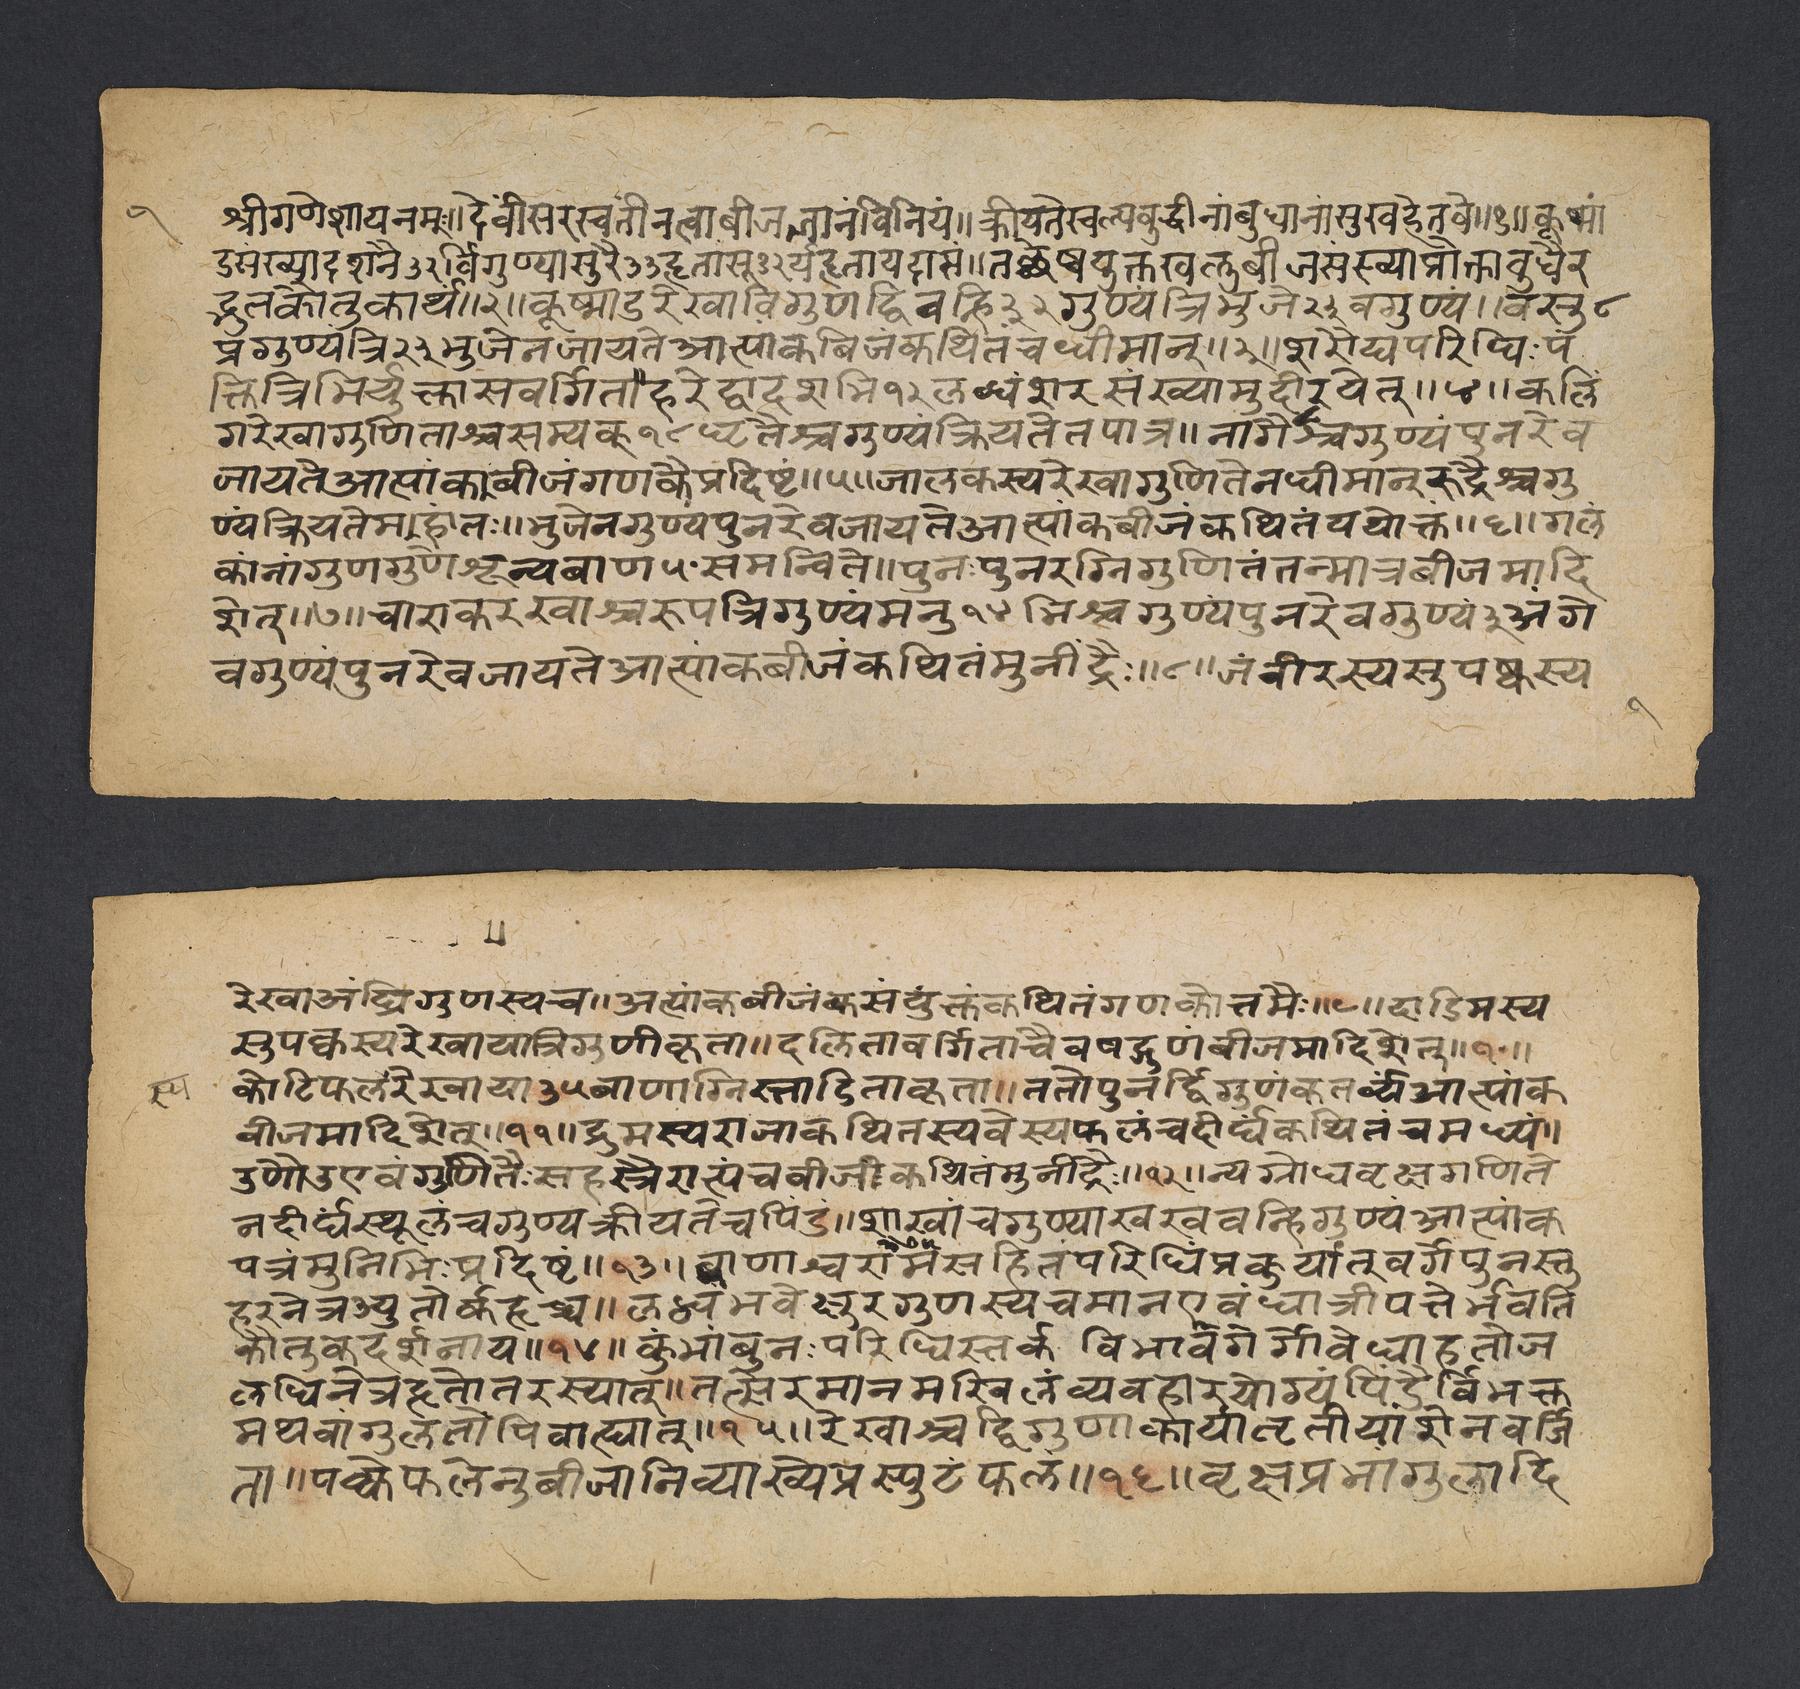 १
श्रीगणेशायनमः॥देवींसरस्वतीनत्वाबीजज्ञानंविनियं॥क्रीयतेस्वल्पबुद्धीनांबुधानांसुखहेतवे॥१॥कूष्मां
डसंख्यादशनै३२र्विगुण्यासुरै३३हृतांसू१२र्यहृतायदाप्तं॥तच्छेषयुक्तखलुबीजसंख्याप्रोक्ताबुधैर
द्भुतकौतुकार्थं॥२॥कूष्माडरेखाविगुणद्विवन्हि३२गुण्यंत्रिभुजे२३वगुण्यं॥वसु८
प्रगुण्यंत्रि२३भुजेनजायतेआत्पांकबिजंकथितंचधीमान्॥३॥शरोघ्यपरिधिःपं
क्तित्रिभिर्युक्तासवर्गिता॥हरेद्वादशभि१२लब्धंशरसंख्यामुदीरयेत्॥४॥कलिं
गरेखागुणिताश्चसम्यक्१८घृतैश्चगुण्यंक्रियतेतपात्र॥नागैश्चगुण्यंपुनरेव
जायतेआत्पांकाबीजंगणकैप्रदिष्टं॥५॥जालकस्यरेखागुणितेनधीमान्रूद्रैश्चगु
ण्यंक्रियतेमहांतः॥भुजेनगुण्यंपुनरेवजायतेआत्पांकबीजंकथितंयथोक्तं॥६॥गलं
कांनांगुणगुणैशून्यबाण५०समन्विते॥पुनःपुनरग्निगुणितंतन्मात्रबीजमादि
शेत्॥७॥चाराकररखाश्चरूपत्रिगुण्यंमनु१४भिश्चगुण्यंपुनरेवगुण्यं३अंगे
वगुण्यंपुनरेवजायतेआत्पांकबीजंकथितंमुनींद्रैः॥८॥जंबीरस्यसुपष्कस्य
१
॥
रेखाअंघ्रिगुणस्यच॥अत्पांकबीजंकसंयुंक्तंकथितंगणकोत्तमैः॥९॥दाडिमस्य
सुपक्कस्यरेखायात्रिगुणीकृता॥दलितावर्गिताचैवषड्गुणंबीजमादिशेत्॥१०॥
स्प
कोटिफलरेखाया३५बाणाग्निस्ताडिताकृता॥ततोपुनर्द्विगुणंकतर्व्यंआत्पांक
बीजमादिशेत्॥११॥द्रुमस्यराजाकथितस्यवेस्यफलंचदीर्घंकथितंचमध्यं॥
३णौ३एवंगुणितैःसहस्त्रैरात्पंचबीजांकथितंमुनींद्रैः॥१२॥न्यग्रोधवृक्षगणिते
नदीर्घंस्थूलंचगुण्यक्रीयतेचपिंडं॥शाखांचगुण्याखखवन्हिगुण्यंआत्पांक
पत्रंमुनिभिःप्रदिष्टं॥१३॥बाणाश्चरामंसहितंपरिधिंप्रकुर्यात्वर्गेपुनस्तु
हरनेत्र३युतोर्कहृच्च॥लब्धंभवेक्षुरगुणस्यचमानएवंधात्रीपत्तेर्भवति
कौतुकदर्शनाय॥१४॥कुंभांबुनःपरिधिस्तर्क विभावर्गेर्गोवेधाहतोज
लधिनेत्रहृतोतरस्यात्॥तत्सेरमानमखिलंव्यवहारयोग्यंपिंडैर्विभक्त
मथवांगुलतोपिवात्घात्॥१५॥रेखाश्चद्विगुणाकार्यातृतीयांशेनवर्जि
ता॥पक्केफलेनुबीजानिव्याख्येप्रस्पुटंफलं॥१६॥वृक्षप्रभागुलादि